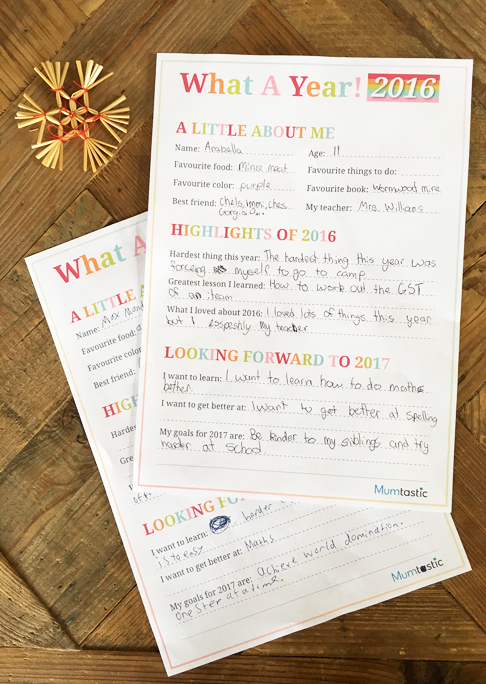 What A Year! 2016
A LITTLE ABOUT ME
Name: Arabella Age: 11
Favourite food: Mince meat Favourite things to do:
Favourite color: purple Favourite book: Wormwood mire
Best friend: Chels, immi, ches My teacher: Mrs. Williams
Gorgia
HIGHLIGHTS OF 2016
Hardest thing this year: The hardest thing this year was
forceing myself to go to camp
Greatest lesson I learned: How to work out the GST
of an iteam
What I loved about 2016: I loved lots of things this year
but I espeshly my teacher
LOOKING FORWARD TO 2017
I want to learn: I want to learn how to do maths
better.
I want to get better at: I want to get better at spelling
My goals for 2017 are: Be kinder to my siblings and try
harder at school
Mumtastic
What A
A LITTLE A
Name: Max
Favourite food:
Favourite color
Best friend:
HIG
Hardes
Gre
LOOKING FOR
I want to learn: harder
is to easy
I want to get better at: Maths
My goals for 2017 are: achieve world domination.
one step at a time.
Mumtastic